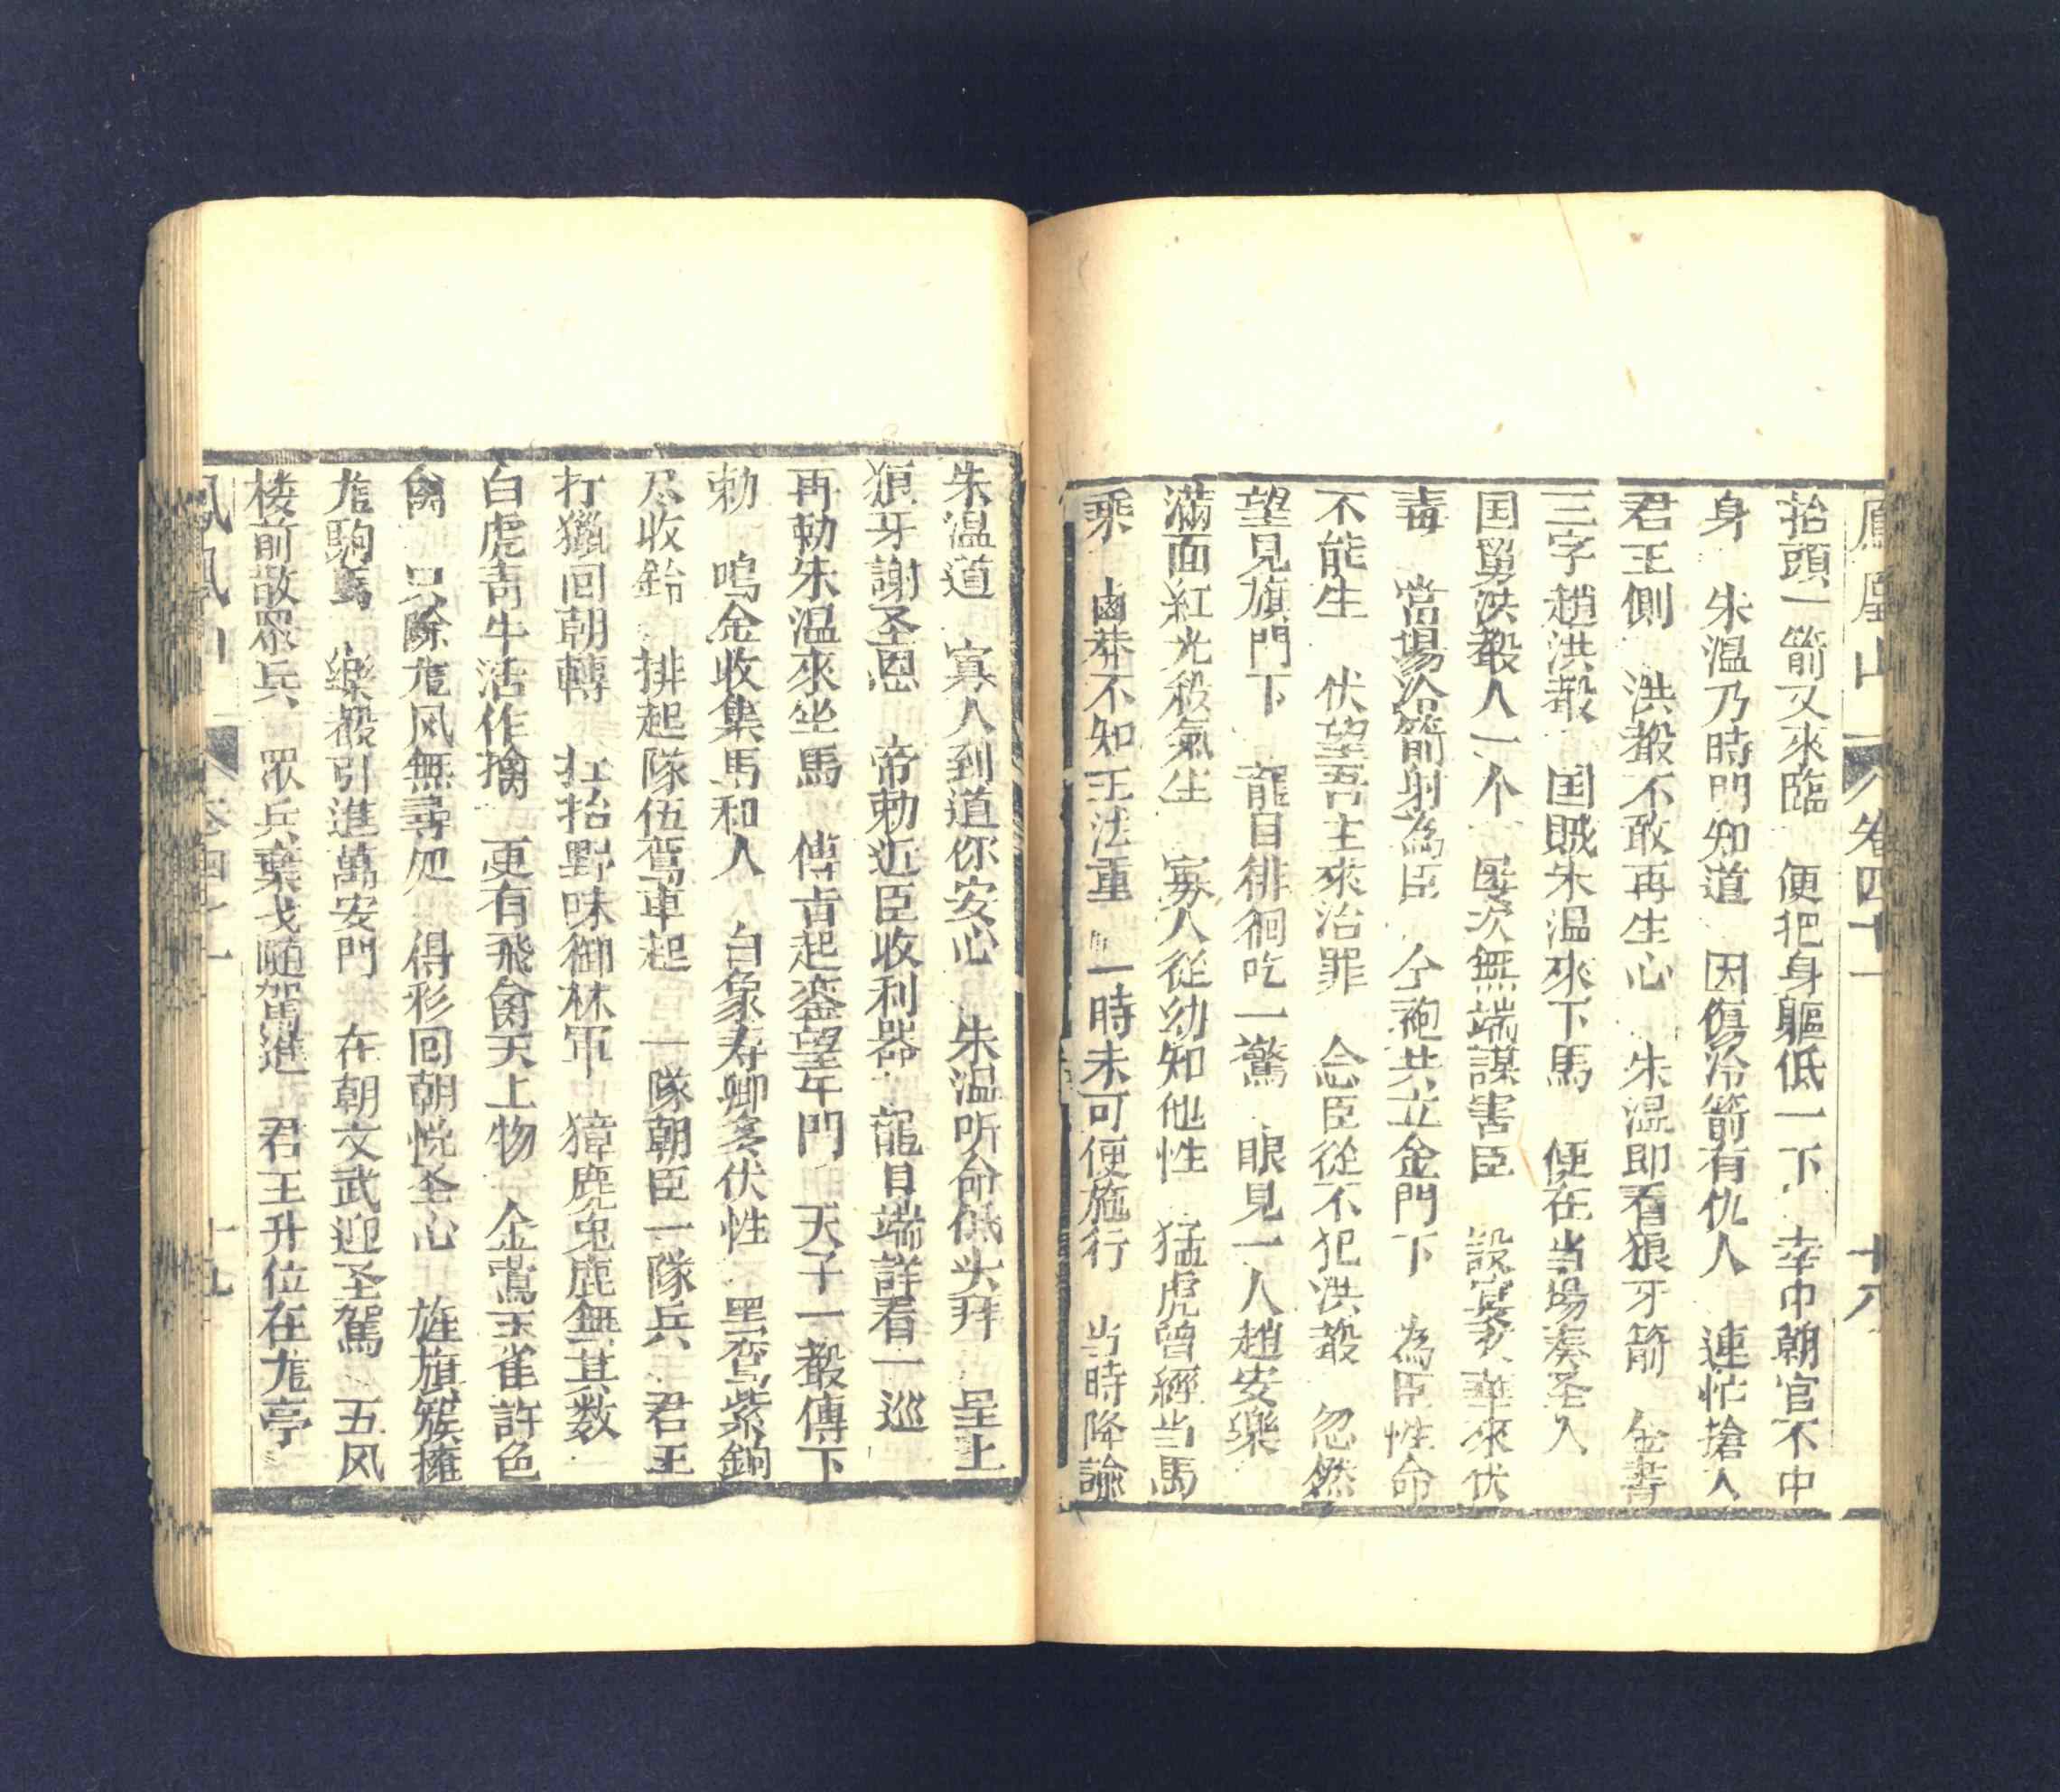 鳳凰山 卷四十一 十八
抬頭一箭又來臨 便把身軀低一下 幸中朝官不中
身 朱温乃時門知道 因傷冷箭有仇人 連忙搶入
君王側 洪殺不敢再生心 朱温即看狼牙箭 金書
三字趙洪殺 国賊朱温來下馬 便在当場奏圣人
国舅洪殺人一个 毎次無端謀害臣 設宴 華來伏
毒 當場冷箭射為臣 今袍共立金門下 為臣性命
不能生 伏望吾主來治罪 念臣從不犯洪殺 忽然
望見旗門下 龍目徘徊吃一驚 眼見一人趙安樂
滿面紅光殺氣生 寡人從幼知他性 猛虎曾經当馬
乘 鹵莽不知王法重 一時未可便施行 当時降諭
朱温道 寡人到道你安心 朱温听命低头拜 呈上
狼牙謝圣恩 帝勅近臣收利器 龍目端詳看一巡
再勅朱温來坐馬 傳旨起鑾望午門 天子一殺傳下
勅 鳴金收集馬和人 白象寿卿多伏性 黑鸾紫銅
尽收鈴 排起隊伍鸾車起 一隊朝臣一隊兵 君王
打獵回朝轉 扛抬野味御林軍 獐鹿兎鹿無其数
白虎青牛活作擒 更有飛禽天上物 金鶯玉雀許色
禽 只除龙风無尋処 得彩回朝悦圣心 旌旗簇擁
龙駒馬 樂殺引進萬安門 在朝文武迎圣駕 五风
楼前散眾兵 眾兵棄戈随駕進 君王升位在龙亭
鳳凰山 卷四十一 十九